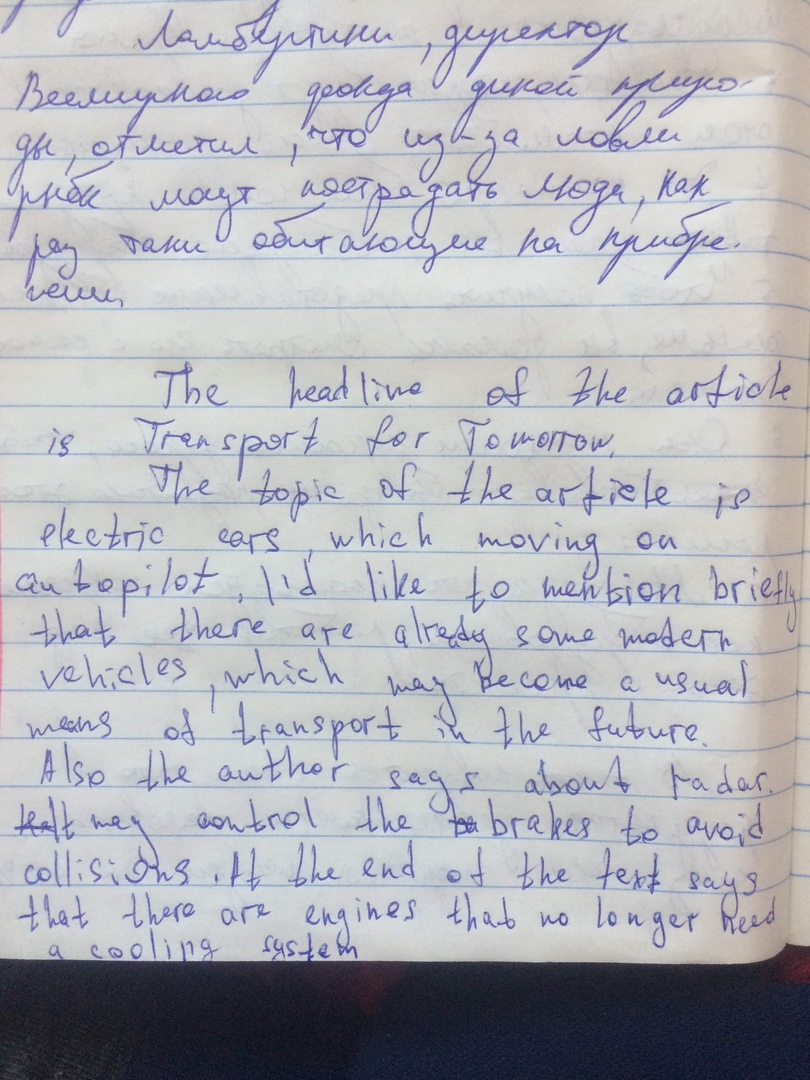 Ламбертини, директор
Всемирного фонда дикой приро-
ды, отметил, что из-за ловли
рыбк могут пострадать люди, как
раз таки обитающие на прибре.
The headline of the article
is Transport for Tomorrow.
The topic of the article is
electric cars, which moving on
autopilot. I'd like to mention briefly
that there are already some modern
vehicles, which may become a usual
means of transport in the future.
Also the author says about radar.
It may control the brakes to avoid
collisions. At the end of the text says
that there are engines that no longer need
a cooling system